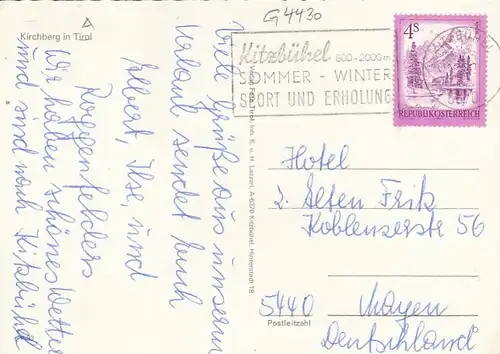 G4430
Kirchberg in Tirol
Viele Grüße aus unserm
Urlaub sendet Euch
Albert, Ilse, und
Roggenfelders
Wir haben schönes Wetter
und sind nach Kitzbühel
Kitzbühel 800-2000m
SOMMER - WINTER
SPORT UND ERHOLUNG
4S
REPUBLIK ÖSTERREICH
Inh. K. u. H. Lazzeri, A-6370 Kitzbühel, Hinterstadt 18
Hotel
z. Alten Fritz
Koblenzerstr 56
5440 Mayen
Postleitzahl
Deutschland